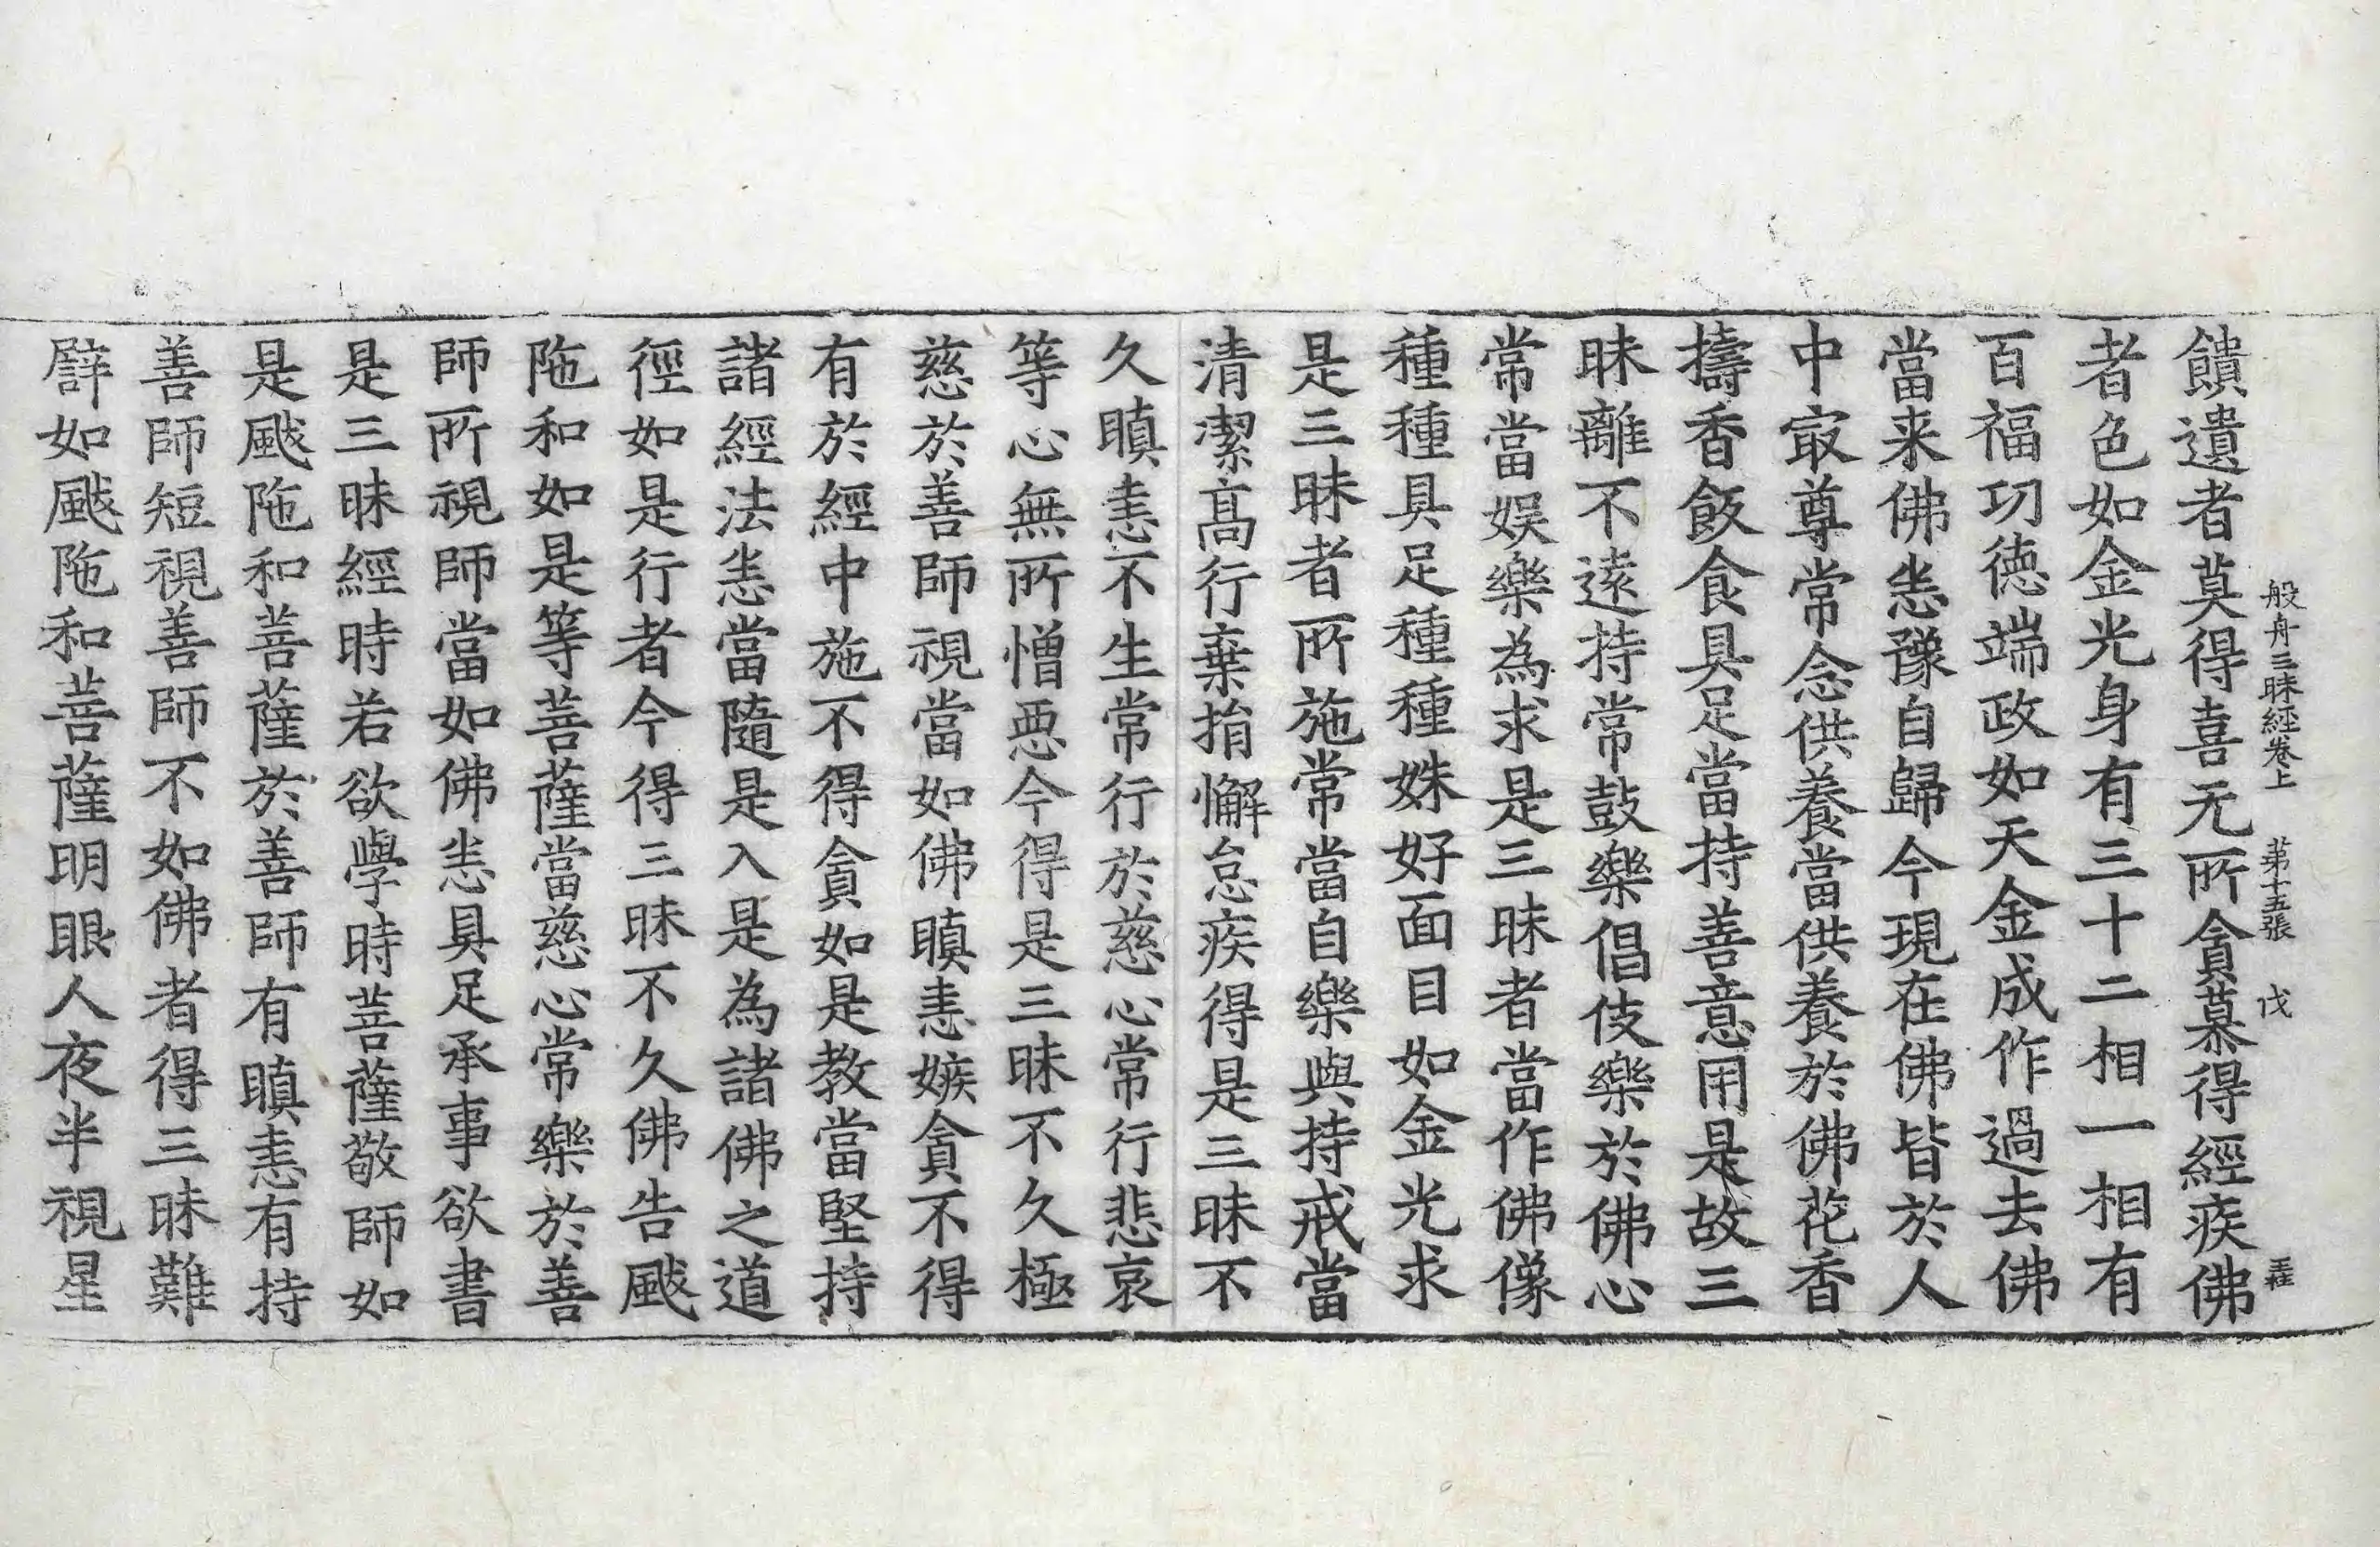 般舟三昧經卷上 第十五張 伐
饋遺者莫得喜无所貪慕得經疾佛
者色如金光身有三十二相一相有
百福功德端政如天金成作過去佛
當来佛恚豫自歸今現在佛皆於人
中㝡尊常念供養當供養於佛花香
擣香飯食具足當持善意用是故三
昧離不遠持常鼓樂倡伎樂於佛心
常當娱樂為求是三昧者當作佛像
種種具足種種姝好面目如金光求
是三昧者所施常當自樂與持戒當
清潔高行棄捐懈怠疾得是三昧不
久瞋恚不生常行於慈心常行悲哀
等心無所憎惡今得是三昧不久極
慈於善師視當如佛瞋恚嫉貪不得
有於經中施不得貪如是教當堅持
諸經法恚當隨是入是為諸佛之道
徑如是行者今得三昧不久佛告颰
陁和如是等菩薩當慈心常樂於善
師所視師當如佛恚具足承事欲書
是三昧經時若欲學時菩薩敬師如
是颰陁和菩薩於善師有瞋恚有持
善師短視善師不如佛者得三昧難
辟如颰陁和菩薩明眼人夜半視星